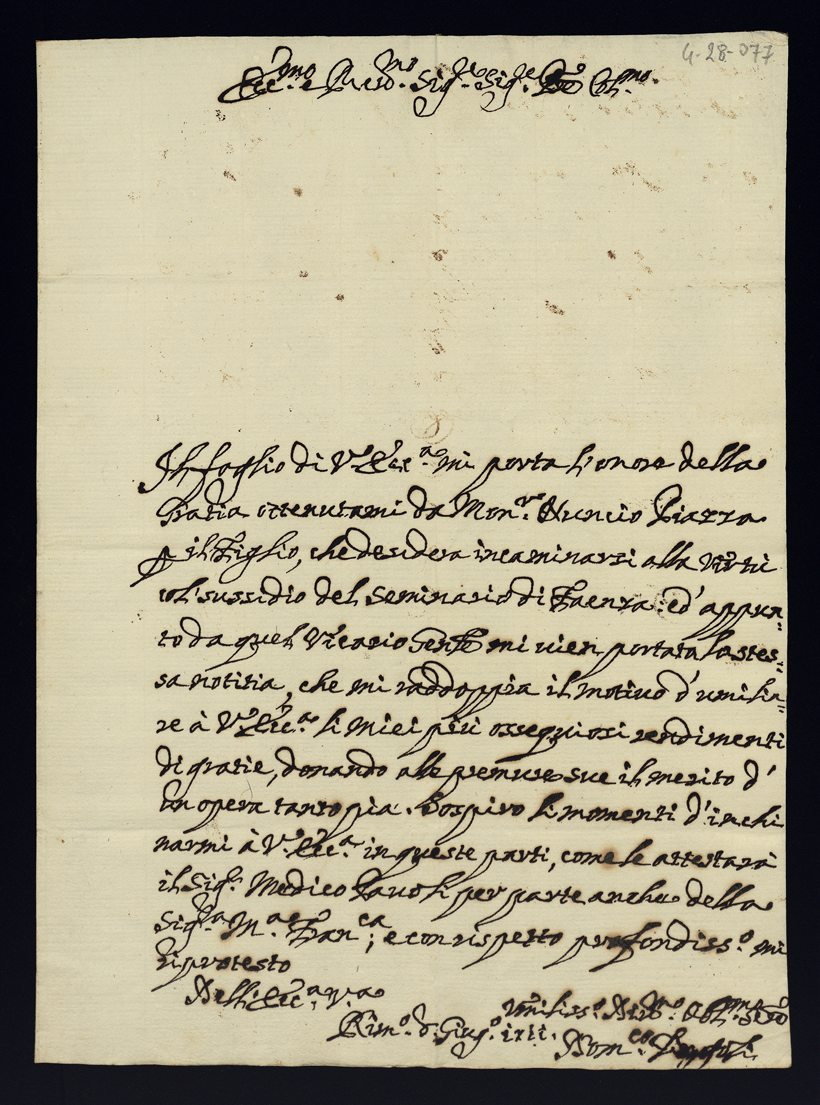 4-28-077
Ecc.mo e Rev.mo Sig.re Sig.re Obl.mo
Il foglio di V.ra Ecc.za mi porta l'onore della
Gratia ottenutami da Mon.re Nuncio Piazza
p il Figlio, che desidera incaminarsi alla virtù
col sussidio del Seminario di Faenza: ed' appun=
to da quel Vicario Gen.le mi vien portata la stes=
sa notitia, che mi raddoppia il motivo d'umilia=
re à V.ra Ecc.za li miei più ossequiosi rendimenti
di gratie, donando alle premure sue il merito d'
un opera tanto pia. Sospiro li momenti d'inchi
narmi à V.ra Ecc.za in queste parti, come le attestarà
il Sig.r Medico Zavoli per parte anche della
Sig.ra M.a Fran.ca; e con rispetto profondiss.o mi
riprotesto
Dell'Ecc.za V.ra
Umiliss.o Div.mo Obl.mo Ser.o
Rim.o Giug.o 1711.
Dom.co